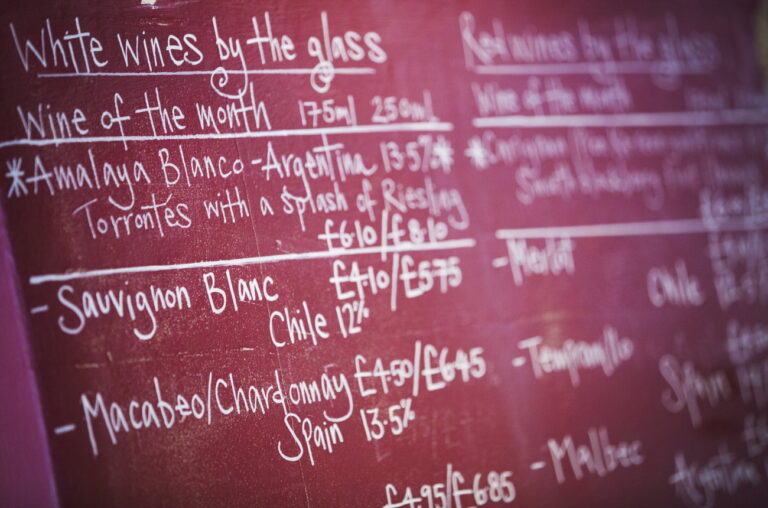 White wines by the glass
Wine of the month 175ml 250ml
*Amalaya Blanco - Argentina 13.5%*
Torrontes with a splash of Riesling
£6.10/£8.10
- Sauvignon Blanc £4.10/£5.75
Chile 12%
- Macabeo/Chardonnay £4.50/£6.45
Spain 13.5%
£4.95/£6.85
Red wines by the glass
Wine of the month
- Merlot
Chile
- Tempranillo
Spain
- Malbec
Argentina